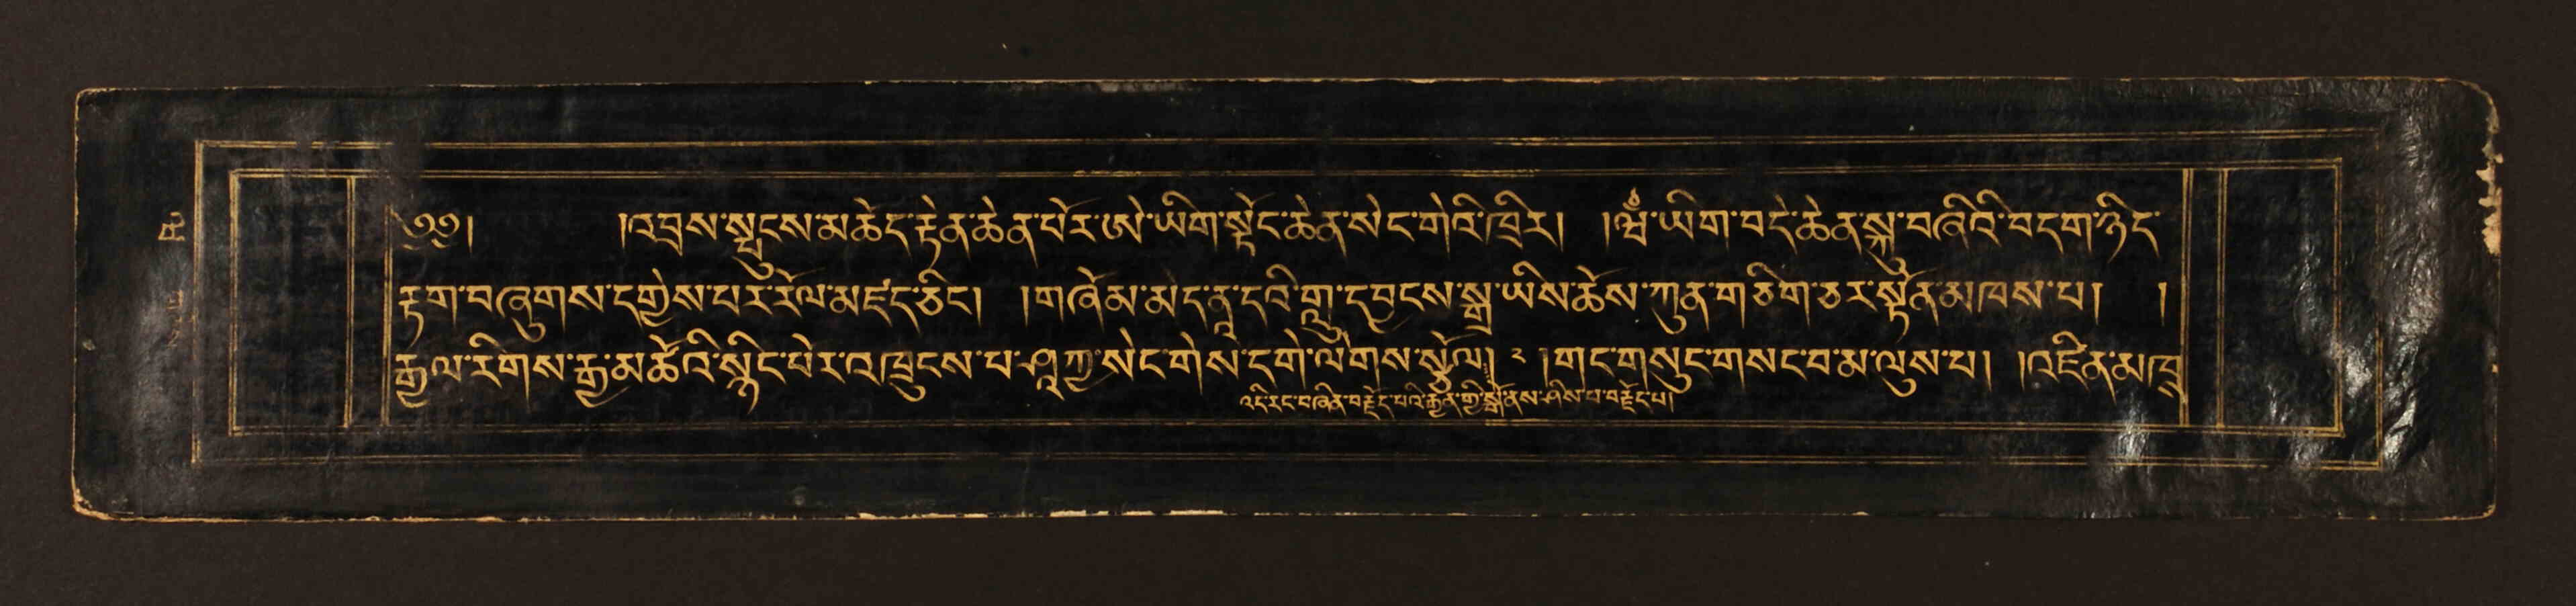 ༄༅། །འབྲས་སྤུངས་མཆོད་རྟེན་ཆེན་པོར་ཨེ་ཡིག་སྟེང་ཆེན་སེང་གེའི་ཁྲིར། །ཝཾ་ཡིག་བདེ་ཆེན་སྐུ་བཞིའི་བདག་ཉིད་
རྟག་བཞུགས་དགྱེས་པར་རོལ་མཛད་ཅིང་། །གཞོམ་མེད་ནཱ་དའི་གླུ་དབྱངས་སྒྲ་ཡིས་ཆོས་ཀུན་གཅིག་ཅར་སྟོན་མཁས་པ། །
རྒྱལ་རིགས་རྒྱ་མཚོའི་སྙིང་པོར་འཁྲུངས་པ་ཤཱཀྱ་སེང་གེས་དགེ་ལེགས་སྩོལ། ༢ །གང་གསུང་གསང་བ་མ་ལུས་པ། །འཛིན་མཁྱ
འདི་རང་བཞིན་བརྗོད་པའི་རྒྱན་གྱི་སྒོ་ནས་ཤིས་པ་བརྗོད་པ།